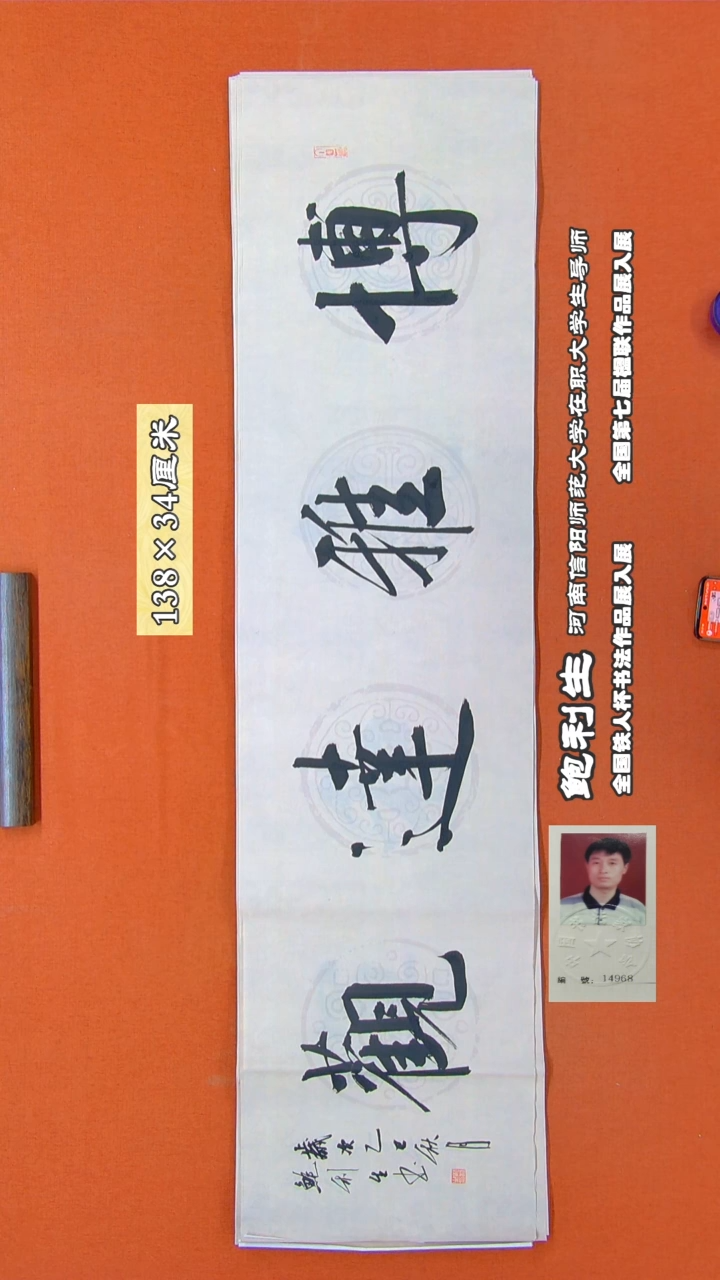 138×34厘米
博雅達觀
歲次乙巳秋月
鮑利生書
鲍利生 河南信阳师范大学在职大学生导师
全国铁人杯书法作品展入展 全国第七届楹联作品展入展
编 号：14968